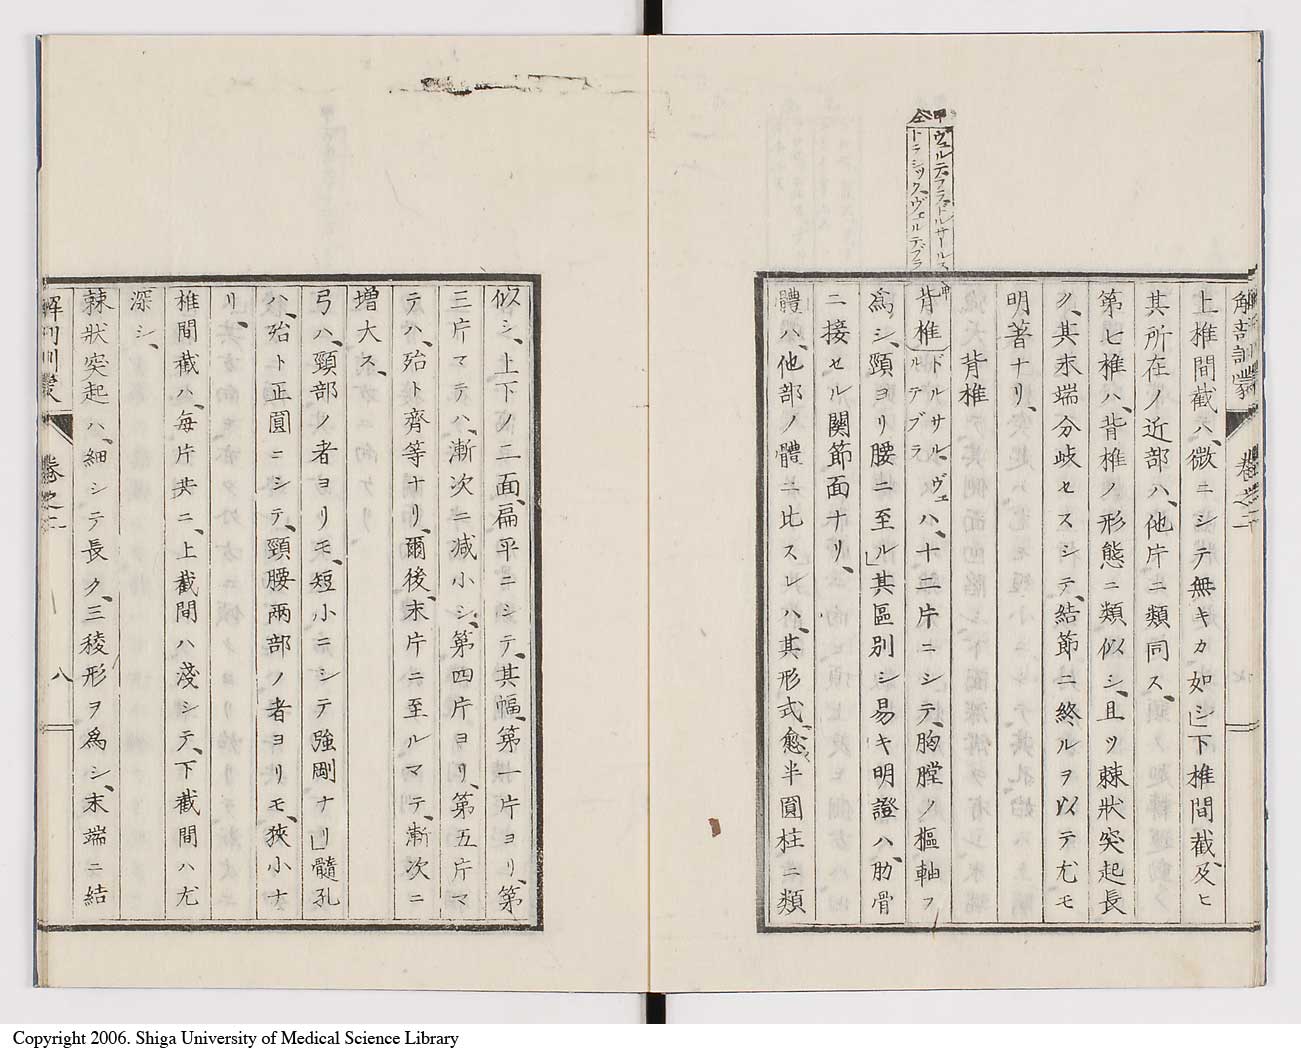 解剖訓蒙 卷之二 七
上椎間截ハ、微ニシテ無キカ如シ」下椎間截及ヒ
其所在ノ近部ハ、他片ニ類同ス、
第七椎ハ、背椎ノ形態ニ類似シ、且ツ棘状突起長
ク、其末端分歧セスシテ、結節ニ終ルヲ以テ尤モ
明著ナリ、
背椎
甲ヴェルテブラドルサールス 坤
仝トラシックヴェルテブラ
背椎(ドルサル、ヴェルテブラ ハ、十二片ニシテ、胸膛ノ樞軸ヲ
為シ、頸ヨリ腰ニ至ル」其區別シ易キ明證ハ、肋骨
ニ接セル関節面ナリ、
體ハ、他部ノ體ニ比スレハ、其形式、愈半圓柱ニ類
似シ、上下ノ二面、扁平ニシテ、其幅、第一片ヨリ、第
三片マテハ、漸次ニ減小シ、第四片ヨリ、第五片マ
テハ、殆ト齊等ナリ、爾後、末片ニ至ルマテ、漸次ニ
増大ス、
弓ハ、頸部ノ者ヨリモ、短小ニシテ強剛ナリ」髓孔
ハ、殆ト正圓ニシテ、頸腰兩部ノ者ヨリモ、狹小ナ
リ、
椎間截ハ、毎片共ニ、上截間ハ淺シテ、下截間ハ尤
深シ、
棘状突起ハ、細シテ長ク、三稜形ヲ為シ、末端ニ結
解剖訓蒙 卷之二 八
Copyright 2006. Shiga University of Medical Science Library